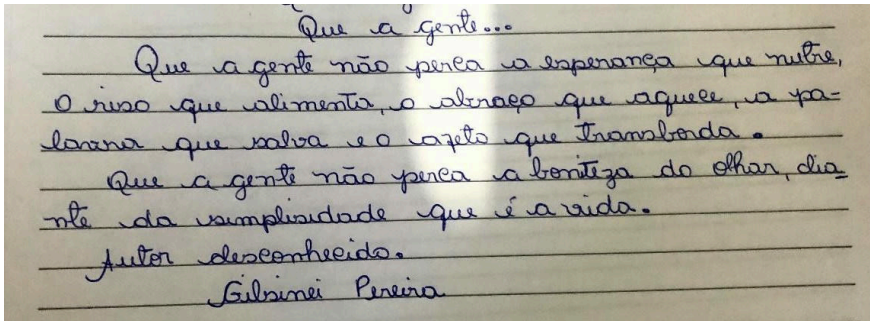 Que a gente...
Que a gente não perca a esperança que nutre,
o riso que alimenta, o abraço que aquece, a pa-
lavra que salva e o afeto que transborda.
Que a gente não perca a boniteza do olhar, dia-
nte da simplicidade que é a vida.
Autor desconhecido.
Gilsinei Pereira